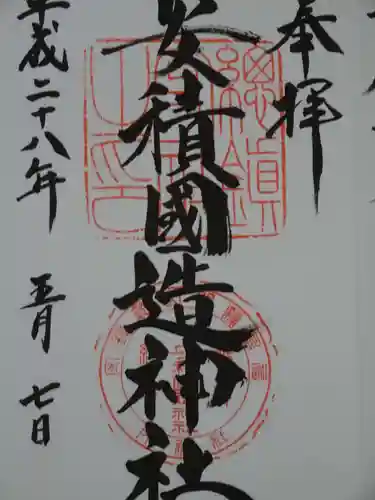 奉拝
安積國造神社
平成二十八年 五月 七日